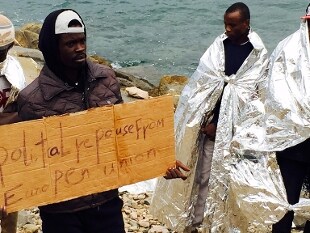 polital repouse from
Europen union